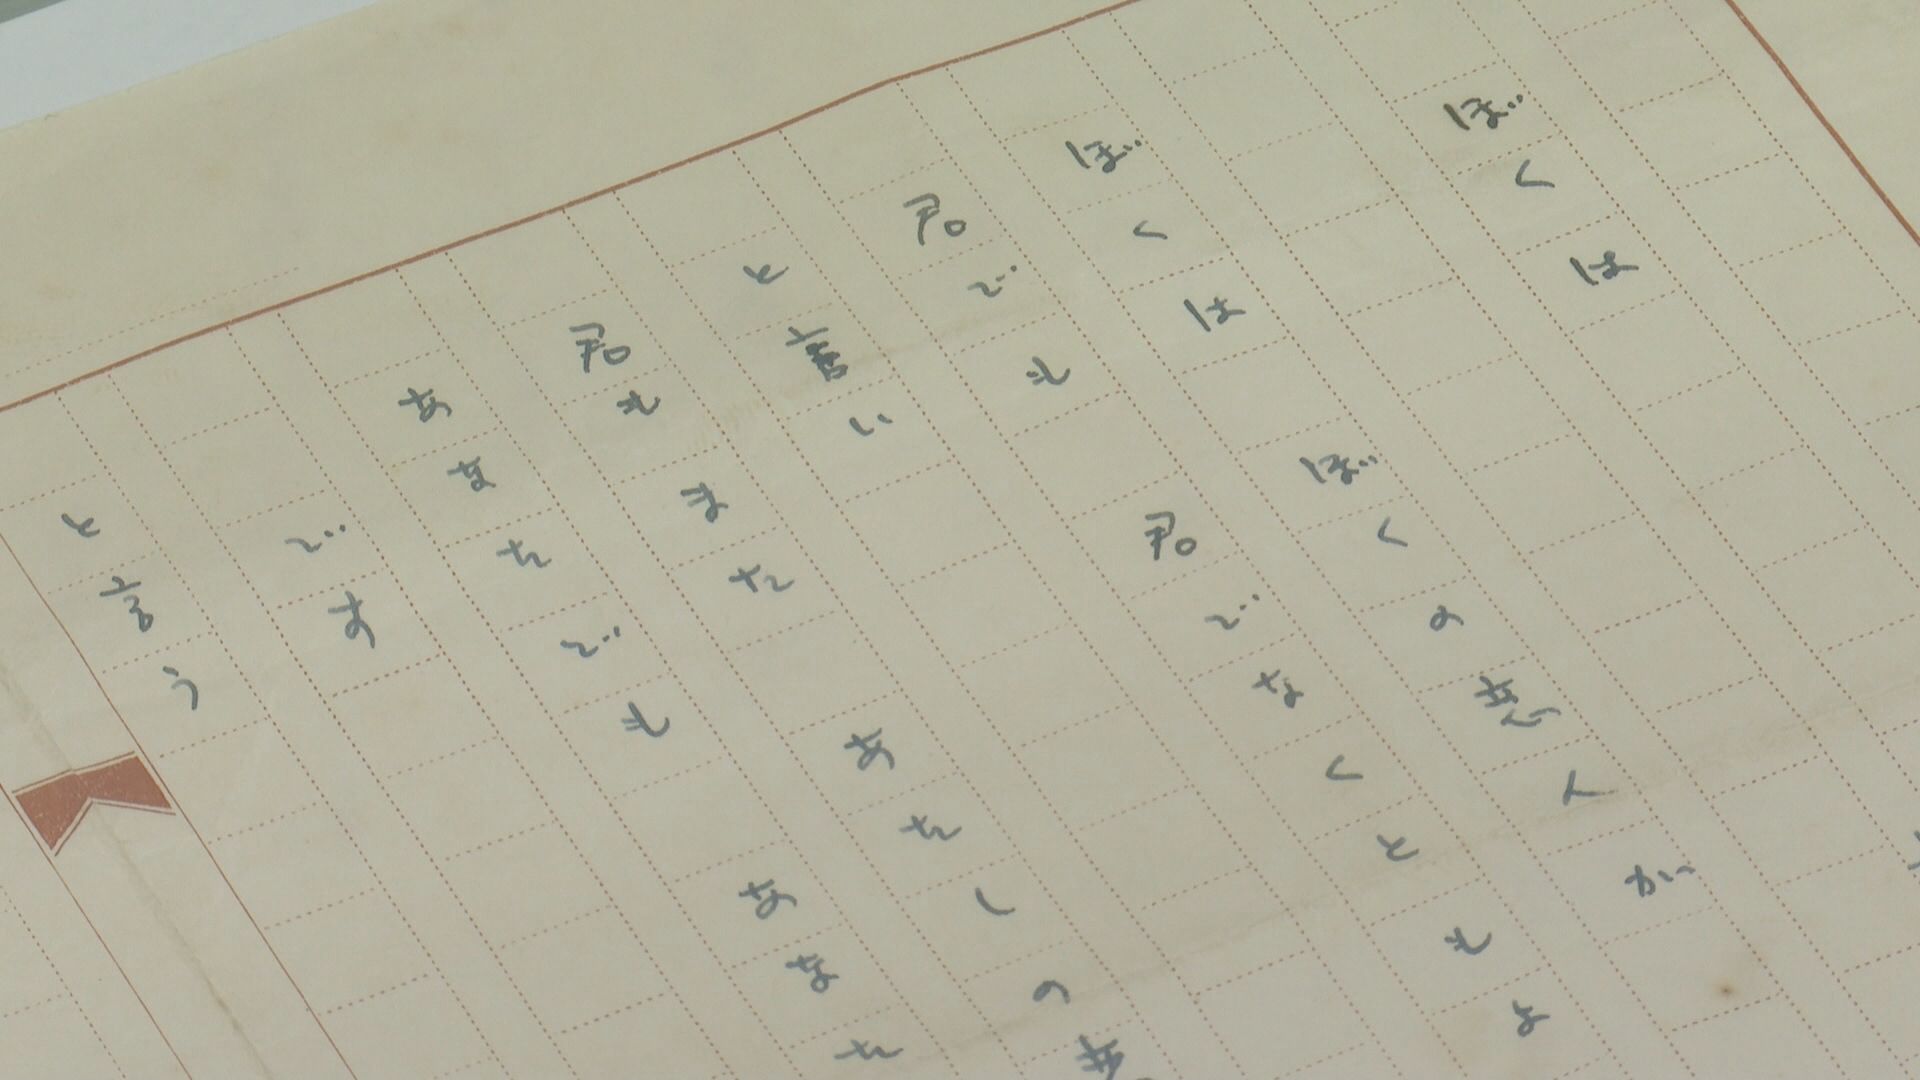 ぼくは
ぼくは　ぼくの恋人が
君でも　君でなくともよ
と言い
君もまた　あたしの恋
あなたでも　あなた
です
と言う